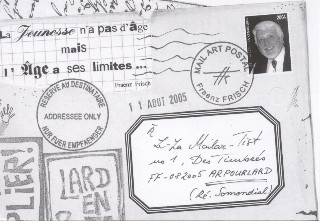 La Jeunesse n'a pas d'âge
mais
l'Âge a ses limites ...
Fraenz Frisch
2004
MAIL ART POSTAL
Fraenz FRISCH
11 AOUT 2005
RESERVE AU DESTINATAIRE
ADDRESSEE ONLY
NUR FUER EMPFAENGER
À
L-La Mailar-Tist
no 1, Des Timbrées
FX-082005 ARPOURLARD
(Ré. Somondial)
PLIER!
LARD
EN